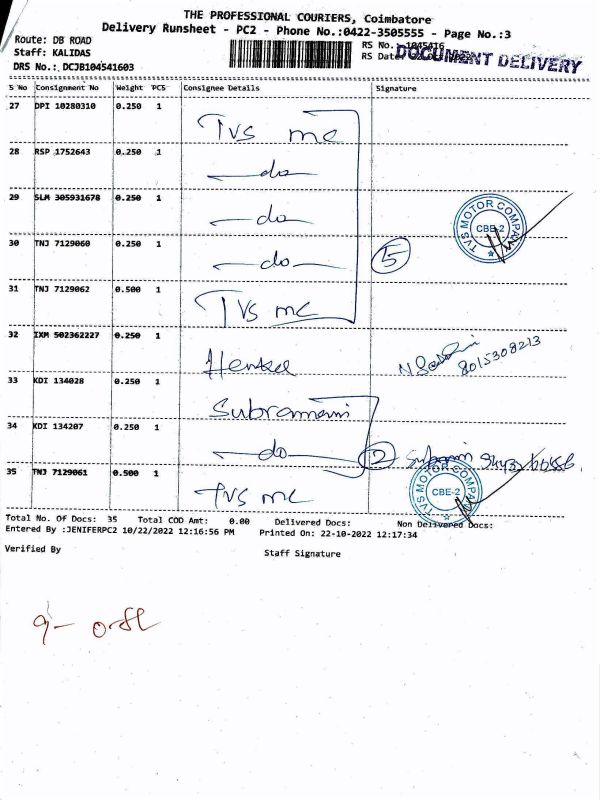 THE PROFESSIONAL COURIERS, Coimbatore
Delivery Runsheet - PC2 - Phone No.:0422-3505555 - Page No.:3
Route: DB ROAD
RS No. 1045416
Staff: KALIDAS
RS Date:
DOCUMENT DELIVERY
DRS No.: DCJB104541603
S No Consignment No Weight PCS Consignee Details Signature
27 DPI 10280310 0.250 1 TVS mc
28 RSP 1752643 0.250 1 —do—
29 SLM 305931678 0.250 1 —do—
TVS MOTOR COMPANY CBE-2
30 TNJ 7129060 0.250 1 —do— 5
31 TNJ 7129062 0.500 1 TVS mc
32 IXM 502362227 0.250 1 Henkel
8015308213
33 KDI 134028 0.250 1 Subramani
34 KDI 134207 0.250 1 —do— 2
35 TNJ 7129061 0.500 1 TVS mc
TVS MOTOR COMPANY CBE-2
Total No. Of Docs: 35 Total COD Amt: 0.00 Delivered Docs: Non Delivered Docs:
Entered By :JENIFERPC2 10/22/2022 12:16:56 PM Printed On: 22-10-2022 12:17:34
Verified By Staff Signature
9-